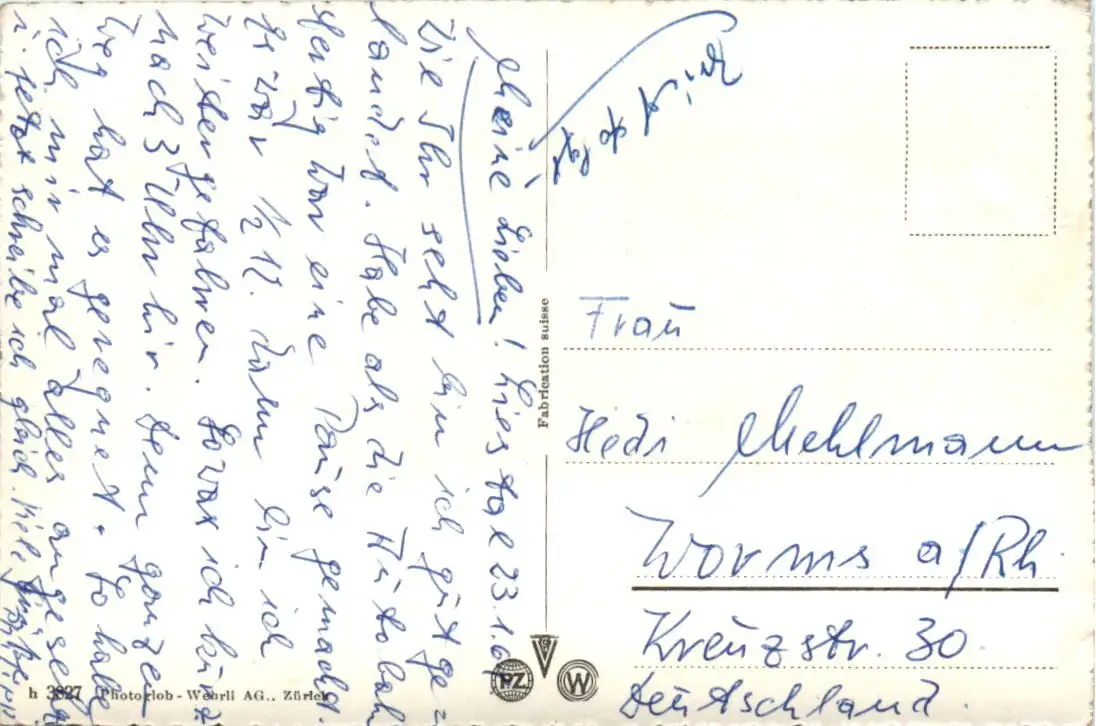 Meine Lieben! Liestal 23.1.6
Wie Ihr seht bin ich gut ge=
landet. Habe als die Autobah
fertig war eine Pause gemacht.
Es war ½ 12. Dann bin ich
weitergefahren. So war ich kurz
nach 3 Uhr hir. Denn ganzen
Weg hat es geregnet. So habe
ich mir mal alles angeseh
u. jetzt schreibe ich gleich. Viele
Brief folgt
Fabrication suisse
Frau
Hedi Mehlmann
Worms a/Rh
Kreuzstr. 30
Deutschland.
h 3827 Photoglob-Wehrli AG., Zürich
PZ
W